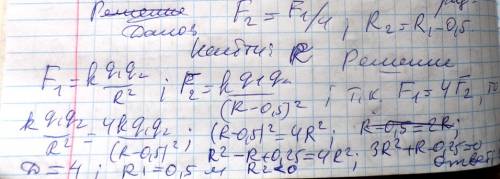 Решение
Дано: F₂ = F₁/4 ; R₂=R₁-0,5
Найти: R Решение
F₁ = k q₁q₂/R² ; F₂ = k q₁q₂/(R-0,5)² ; т.к. F₁=4F₂, то
k q₁q₂/R² = 4k q₁q₂/(R-0,5)² ; (R-0,5)²=4R² ; R-0,5=2R;
R²-R+0,25=4R²; 3R²+R-0,25=0
D=4 ; R₁=0,5 м R₂<0 Ответ